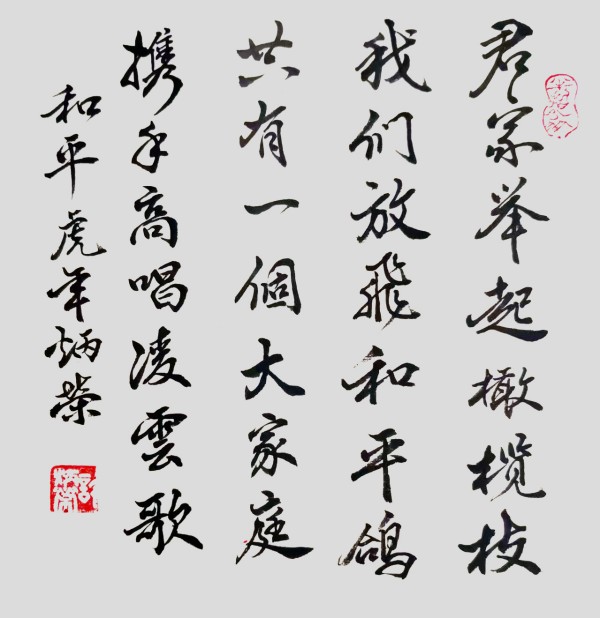 君家举起橄榄枝
我们放飞和平鸽
共有一個大家庭
携手高唱凌雲歌
和平虎年炳荣